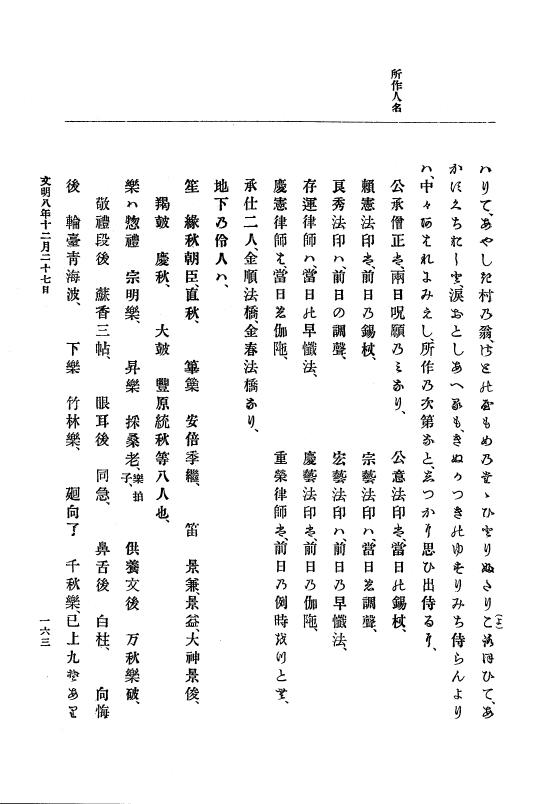 所作人名
ハりて、あやしき村乃翁、はとれやもめ乃までひざりぬさりこ落ほひて、あ
かにえちれしを、涙おとしあへるも、きぬかつきれゆをりみち侍らんより
ハ、中々あはれにみえし、所作乃次第あと、えつかり思ひ出侍るり、
公承僧正は、兩日呪願乃ミあり、 公意法印は、當日れ錫杖、
賴憲法印は、前日乃錫杖、 宗藝法印ハ、當日は調聲、
良秀法印ハ、前日の調聲、 宏藝法印ハ、前日乃早懺法、
存運律師ハ、當日れ早懺法、 慶藝法印は、前日乃伽陁、
慶憲律師は、當日は伽陁、 重榮律師は、前日乃例時
承仕二人、金順法橋、金春法橋あり、
地下乃伶人ハ、
笙 緣秋朝臣、直秋、 篳篥 安倍季繼、 笛 景兼、景益、大神景俊、
羯鼓 慶秋、 大鼓 豐原統秋等八人也、
樂ハ惣禮 宗明樂、 昇樂 採桑老、樂拍子、 供養文後 万秋樂破、
敬禮段後 蘇香三帖、 眼耳後 同急、 鼻舌後 白柱、 向悔
後 輪臺靑海波、 下樂 竹林樂、 廻向了 千秋樂、已上九
文明八年十二月二十七日
一六三